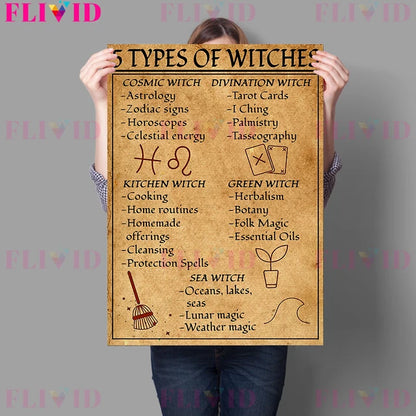 FLIVID
5 TYPES OF WITCHES
COSMIC WITCH
-Astrology
-Zodiac signs
-Horoscopes
-Celestial energy
DIVINATION WITCH
-Tarot Cards
-I Ching
-Palmistry
-Tasseography
KITCHEN WITCH
-Cooking
-Home routines
-Homemade
offerings
-Cleansing
-Protection Spells
GREEN WITCH
-Herbalism
-Botany
-Folk Magic
-Essential Oils
SEA WITCH
-Oceans, lakes,
seas
-Lunar magic
-Weather magic